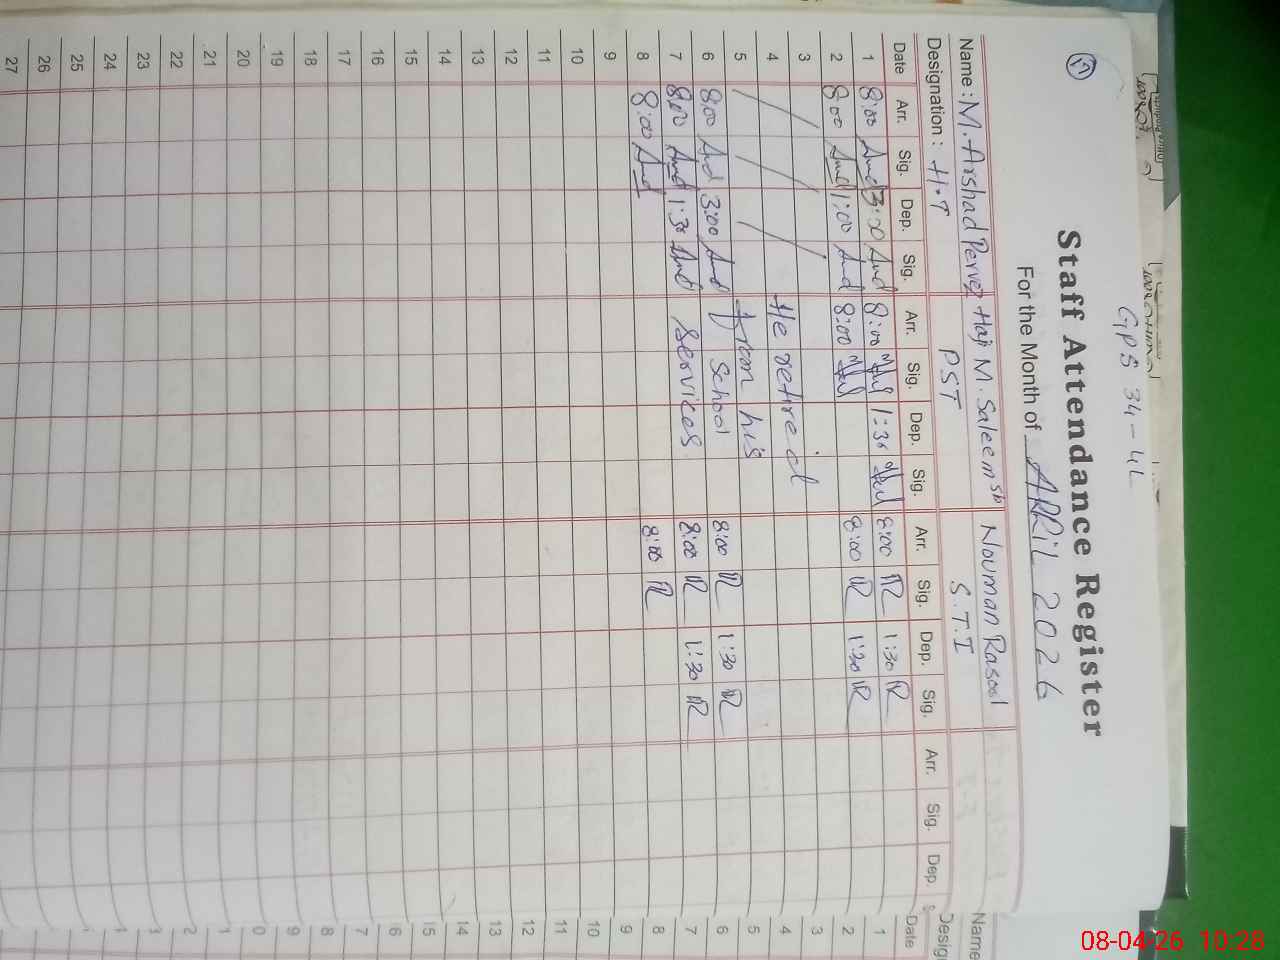 GPS 34-4L
Staff Attendance Register
For the Month of APRiL 2026
Name : M. Arshad Pervez Haji M. Saleem Sb Nouman Rasool
Designation : H.T PST S.T.I
Date Arr. Sig. Dep. Sig. Arr. Sig. Dep. Sig. Arr. Sig. Dep. Sig. Arr. Sig. Dep.
1 8:00 3:00 8:00 1:30 8:00 1:30
2 8:00 1:00 8:00 8:00 1:30
3
4 He retired
5 from his
6 8:00 3:00 School 8:00 1:30
7 8:00 1:30 Services 8:00 1:30
8 8:00 8:00
9
10
11
12
13
14
15
16
17
18
19
20
21
22
23
24
25
26
27
Name
Date
1
2
3
4
5
6
7
8
9
10
11
12
13
14
15
08-04-26 10:28